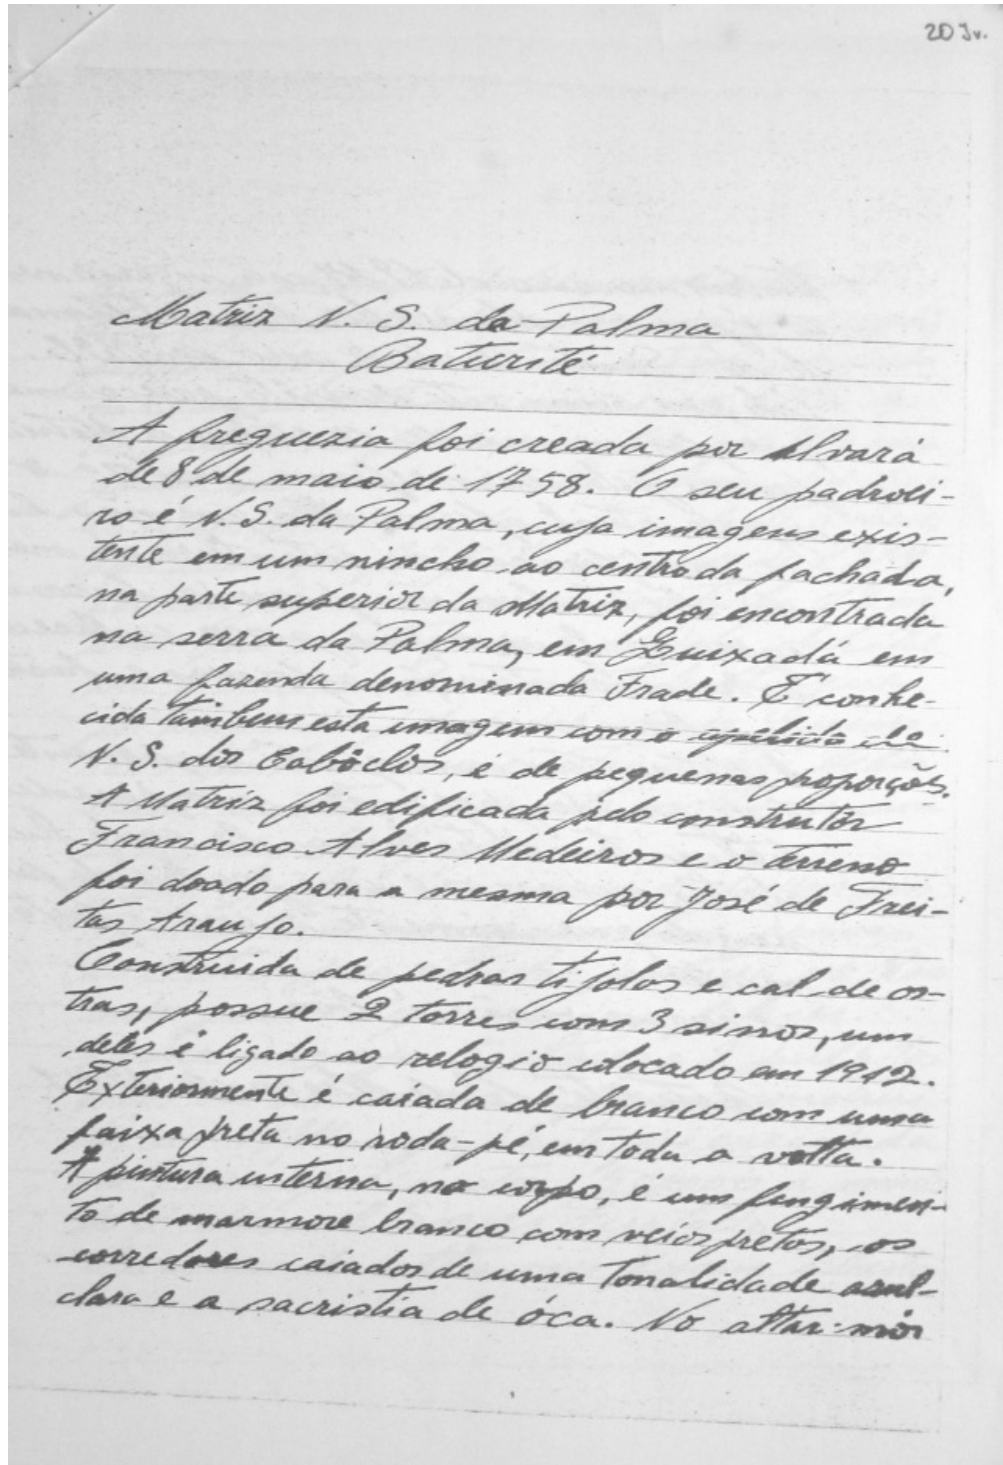 20 Jv.
Matriz N. S. da Palma
Baturité
A freguezia foi creada por Alvará
de 8 de maio de 1758. O seu padroei-
ro é N. S. da Palma, cuja imagem exis-
tente em um nincho ao centro da fachada,
na parte superior da Matriz, foi encontrada
na serra da Palma, em Quixadá em
uma fazenda denominada Frade. É conhe-
cida tambem esta imagem com o apelido de
N. S. dos Cabôclos, é de pequenas proporções.
A Matriz foi edificada pelo construtôr
Francisco Alves Medeiros e o terreno
foi doado para a mesma por José de Frei-
tas Araujo.
Construida de pedras tijolos e cal de os-
tras, possue 2 torres com 3 sinos, um
deles é ligado ao relogio colocado em 1912.
Exteriormente é caiada de branco com uma
faixa preta no roda-pé, em toda a volta.
A pintura interna, no corpo, é um fungimen-
to de marmore branco com veios pretos, os
corredores caiados de uma tonalidade azul-
clara e a sacristia de óca. No altar-mór